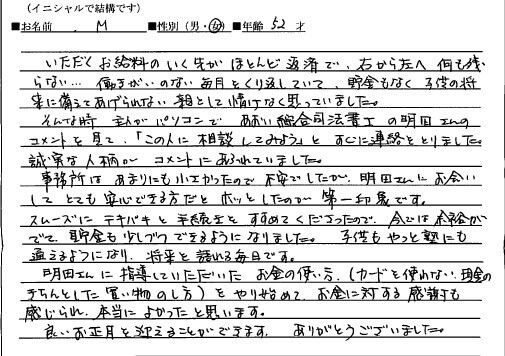 (イニシャルで結構です)
■お名前 M ■性別(男・女)■年齢 52 才
いただくお給料のいく先がほとんど返済で、右から左へ何も残
らない… 働きがいのない毎月をくり返していて、貯金もなく子供の将
来に備えてあげられない親として情けなく思っていました。
そんな時 主人がパソコンで あおい総合司法書士の明田さんの
コメントを見て、「この人に相談してみよう」とすぐに連絡をとりました。
誠実な人柄が コメントにあふれていました。
事務所は あまりにも小さかったので 不安でしたが、明田さんにお会い
して とても安心できる方だと ホッとしたのが 第一印象です。
スムーズに テキパキと 手続きを すすめてくださったので、今では余裕が
でて、貯金も少しづつできるようになりました。 子供もやっと塾にも
通えるようになり、将来を語れる毎日です。
明田さんに指導していただいた お金の使い方、(カードを使わない、現金の
きちんとした買い物のし方)を やり始めて、お金に対する感謝も
感じられ、本当によかったと思います。
良いお正月を迎えることができます。 ありがとうございました。